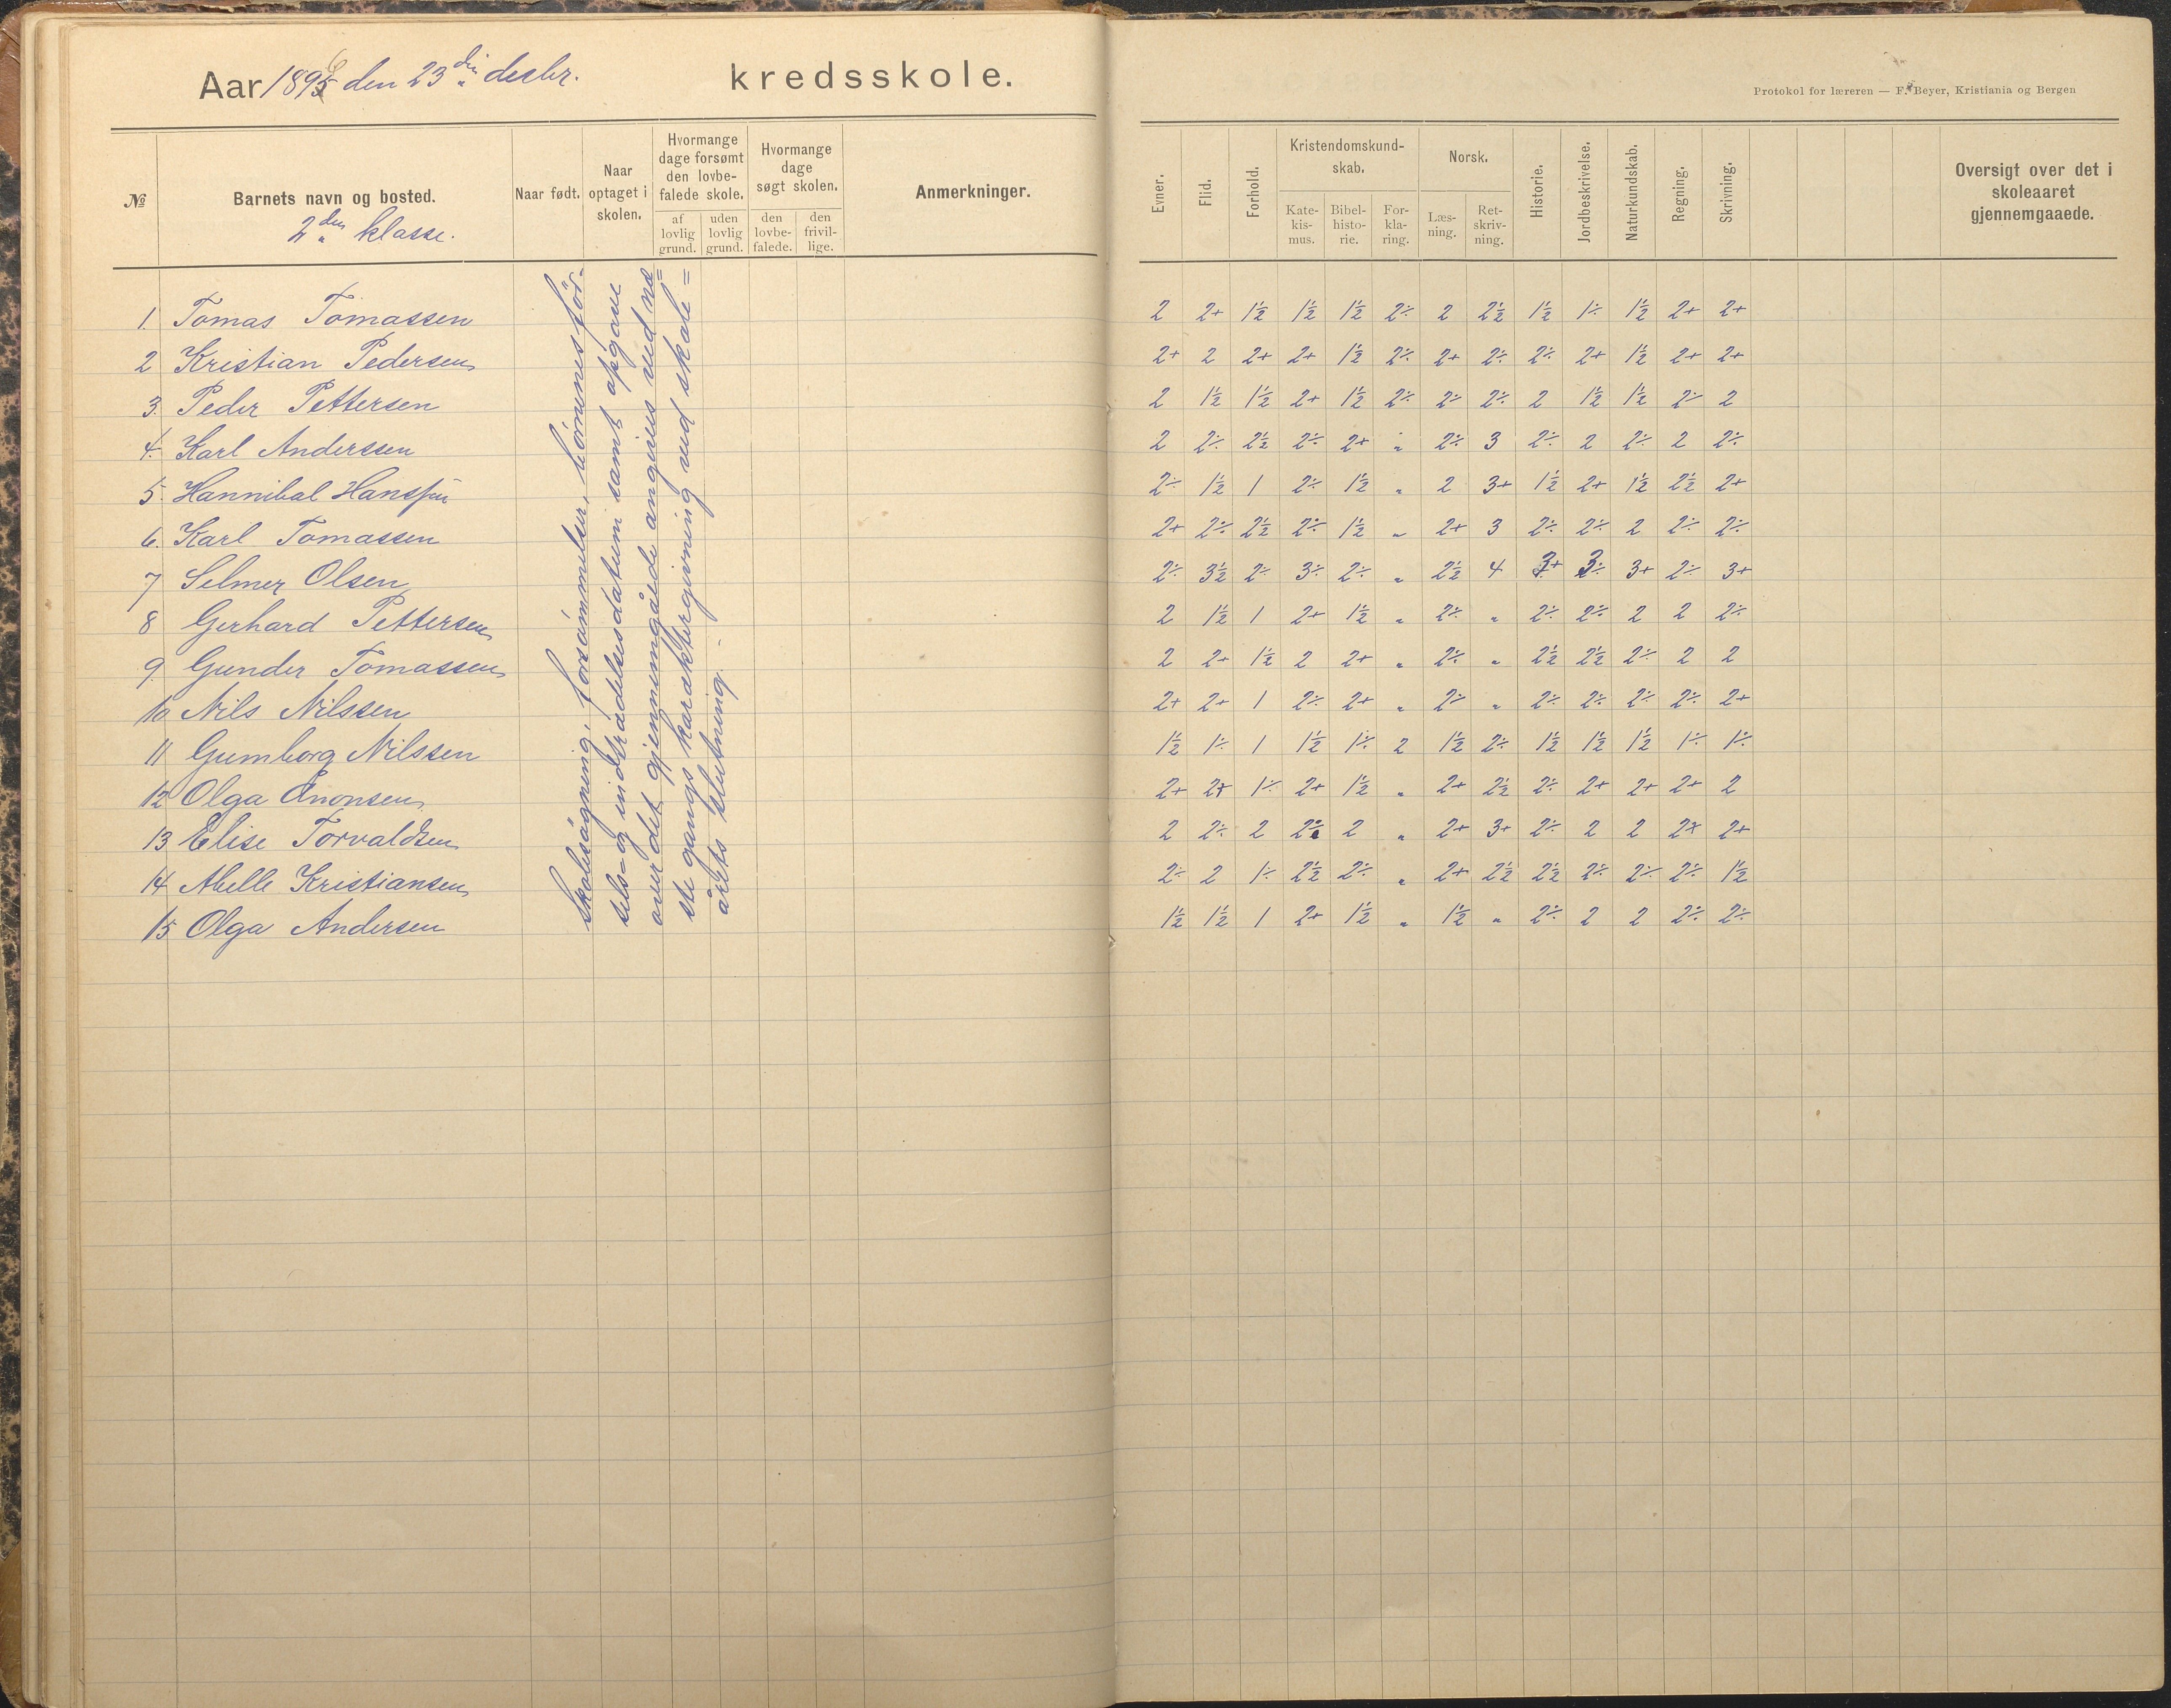 Aar 1896 den 23 din decbr. kredsskole.
Protokol for læreren — F. Beyer, Kristiania og Bergen
№ Barnets navn og bosted. Naar født. Naar optaget i skolen. Hvormange dage forsømt den lovbefalede skole. af lovlig grund. uden lovlig grund. Hvormange dage søgt skolen. den lovbefalede. den frivillige. Anmerkninger.
2 den klasse.
Evner. Flid. Forhold. Kristendomskundskab. Katekismus. Bibelhistorie. Forklaring. Norsk. Læsning. Retskrivning. Historie. Jordbeskrivelse. Naturkundskab. Regning. Skrivning. Oversigt over det i skoleaaret gjennemgaaede.
1. Tomas Tomassen 2 2+ 1½ 1½ 1½ 2÷ 2 2½ 1½ 1÷ 1½ 2+ 2+
2 Kristian Pedersen 2+ 2 2+ 2+ 1½ 2÷ 2+ 2÷ 2÷ 2+ 1½ 2+ 2+
3. Peder Pettersen 2 1½ 1½ 2+ 1½ 2÷ 2÷ 2÷ 2 1½ 1½ 2÷ 2
4. Karl Anderssen 2 2÷ 2½ 2÷ 2+ " 2÷ 3 2÷ 2 2÷ 2 2÷
5. Hannibal Hanssen 2÷ 1½ 1 2÷ 1½ " 2 3+ 1½ 2+ 1½ 2½ 2+
6. Karl Tomassen 2+ 2÷ 2½ 2÷ 1½ " 2+ 3 2÷ 2÷ 2 2÷ 2÷
7 Selmer Olsen 2÷ 3½ 2÷ 3÷ 2÷ " 2½ 4 3+ 3÷ 3+ 2÷ 3+
8 Gerhard Pettersen 2 1½ 1 2+ 1½ " 2÷ " 2÷ 2÷ 2 2 2÷
9. Gunder Tomassen 2 2+ 1½ 2 2+ " 2÷ " 2½ 2½ 2÷ 2 2
10 Nils Nilssen 2+ 2+ 1 2÷ 2+ " 2÷ " 2÷ 2÷ 2÷ 2÷ 2+
11 Gumborg Nilssen 1½ 1÷ 1 1½ 1÷ 2 1½ 2÷ 1½ 1½ 1½ 1÷ 1÷
12 Olga Enonsen 2+ 2+ 1÷ 2+ 1½ " 2+ 2½ 2÷ 2+ 2+ 2+ 2
13 Elise Torvaldsen 2 2÷ 2 2÷ 2 " 2+ 3+ 2÷ 2 2 2+ 2+
14 Abelle Kristiansen 2÷ 2 1÷ 2½ 2÷ " 2+ 2½ 2½ 2÷ 2÷ 2÷ 1½
15 Olga Andersen 1½ 1½ 1 2+ 1½ " 1½ " 2÷ 2 2 2÷ 2÷
Skolesøgning, forsømmelser, børnenes fød-
sels- og indtrædelsesdatum samt opgave
over det gjennemgåede angives ved næ=
ste gangs karaktergivning ved skole=
årets slutning.